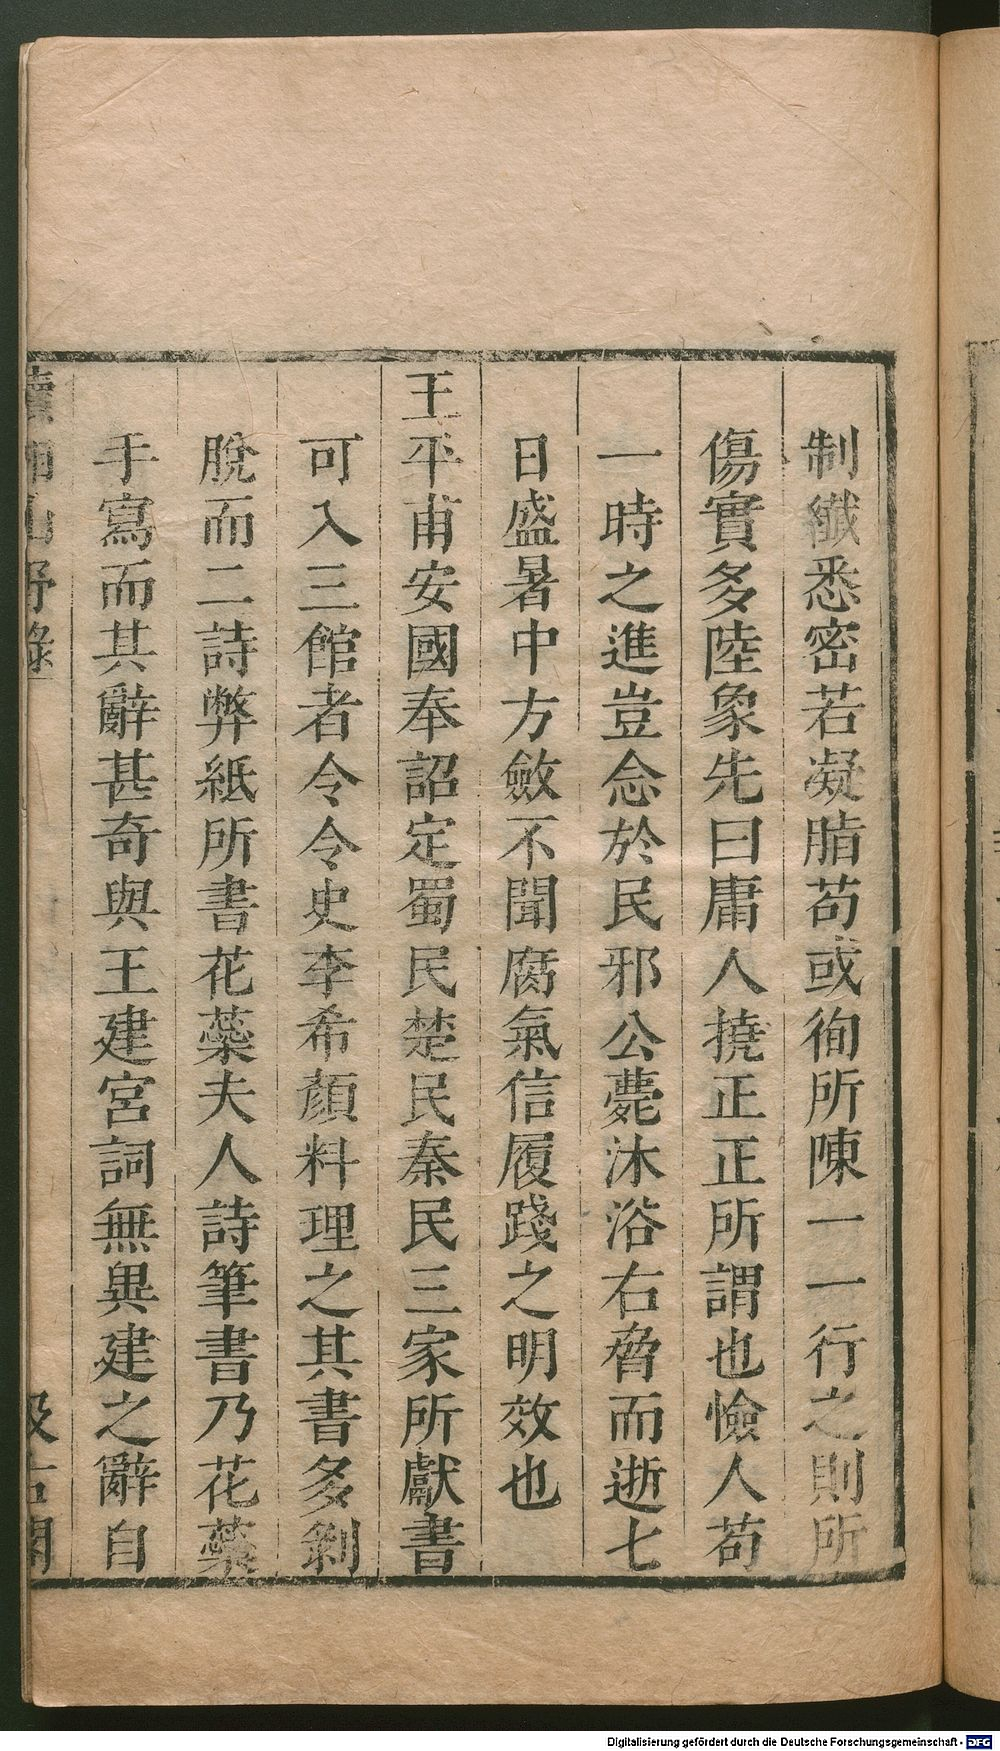 制纖悉密若凝脂苟或徇所陳一一行之則所
傷實多陸象先曰庸人撓正正所謂也憸人苟
一時之進豈念於民邪公薨沐浴右脅而逝七
日盛暑中方斂不聞腐氣信履踐之明效也
王平甫安國奉詔定蜀民楚民秦民三家所獻書
可入三館者令令史李希顏料理之其書多剝
脫而二詩弊紙所書花蘂夫人詩筆書乃花蘂
手寫而其辭甚奇與王建宮詞無異建之辭自
續湘山野錄
汲古閣
Digitalisierung gefördert durch die Deutsche Forschungsgemeinschaft - DFG